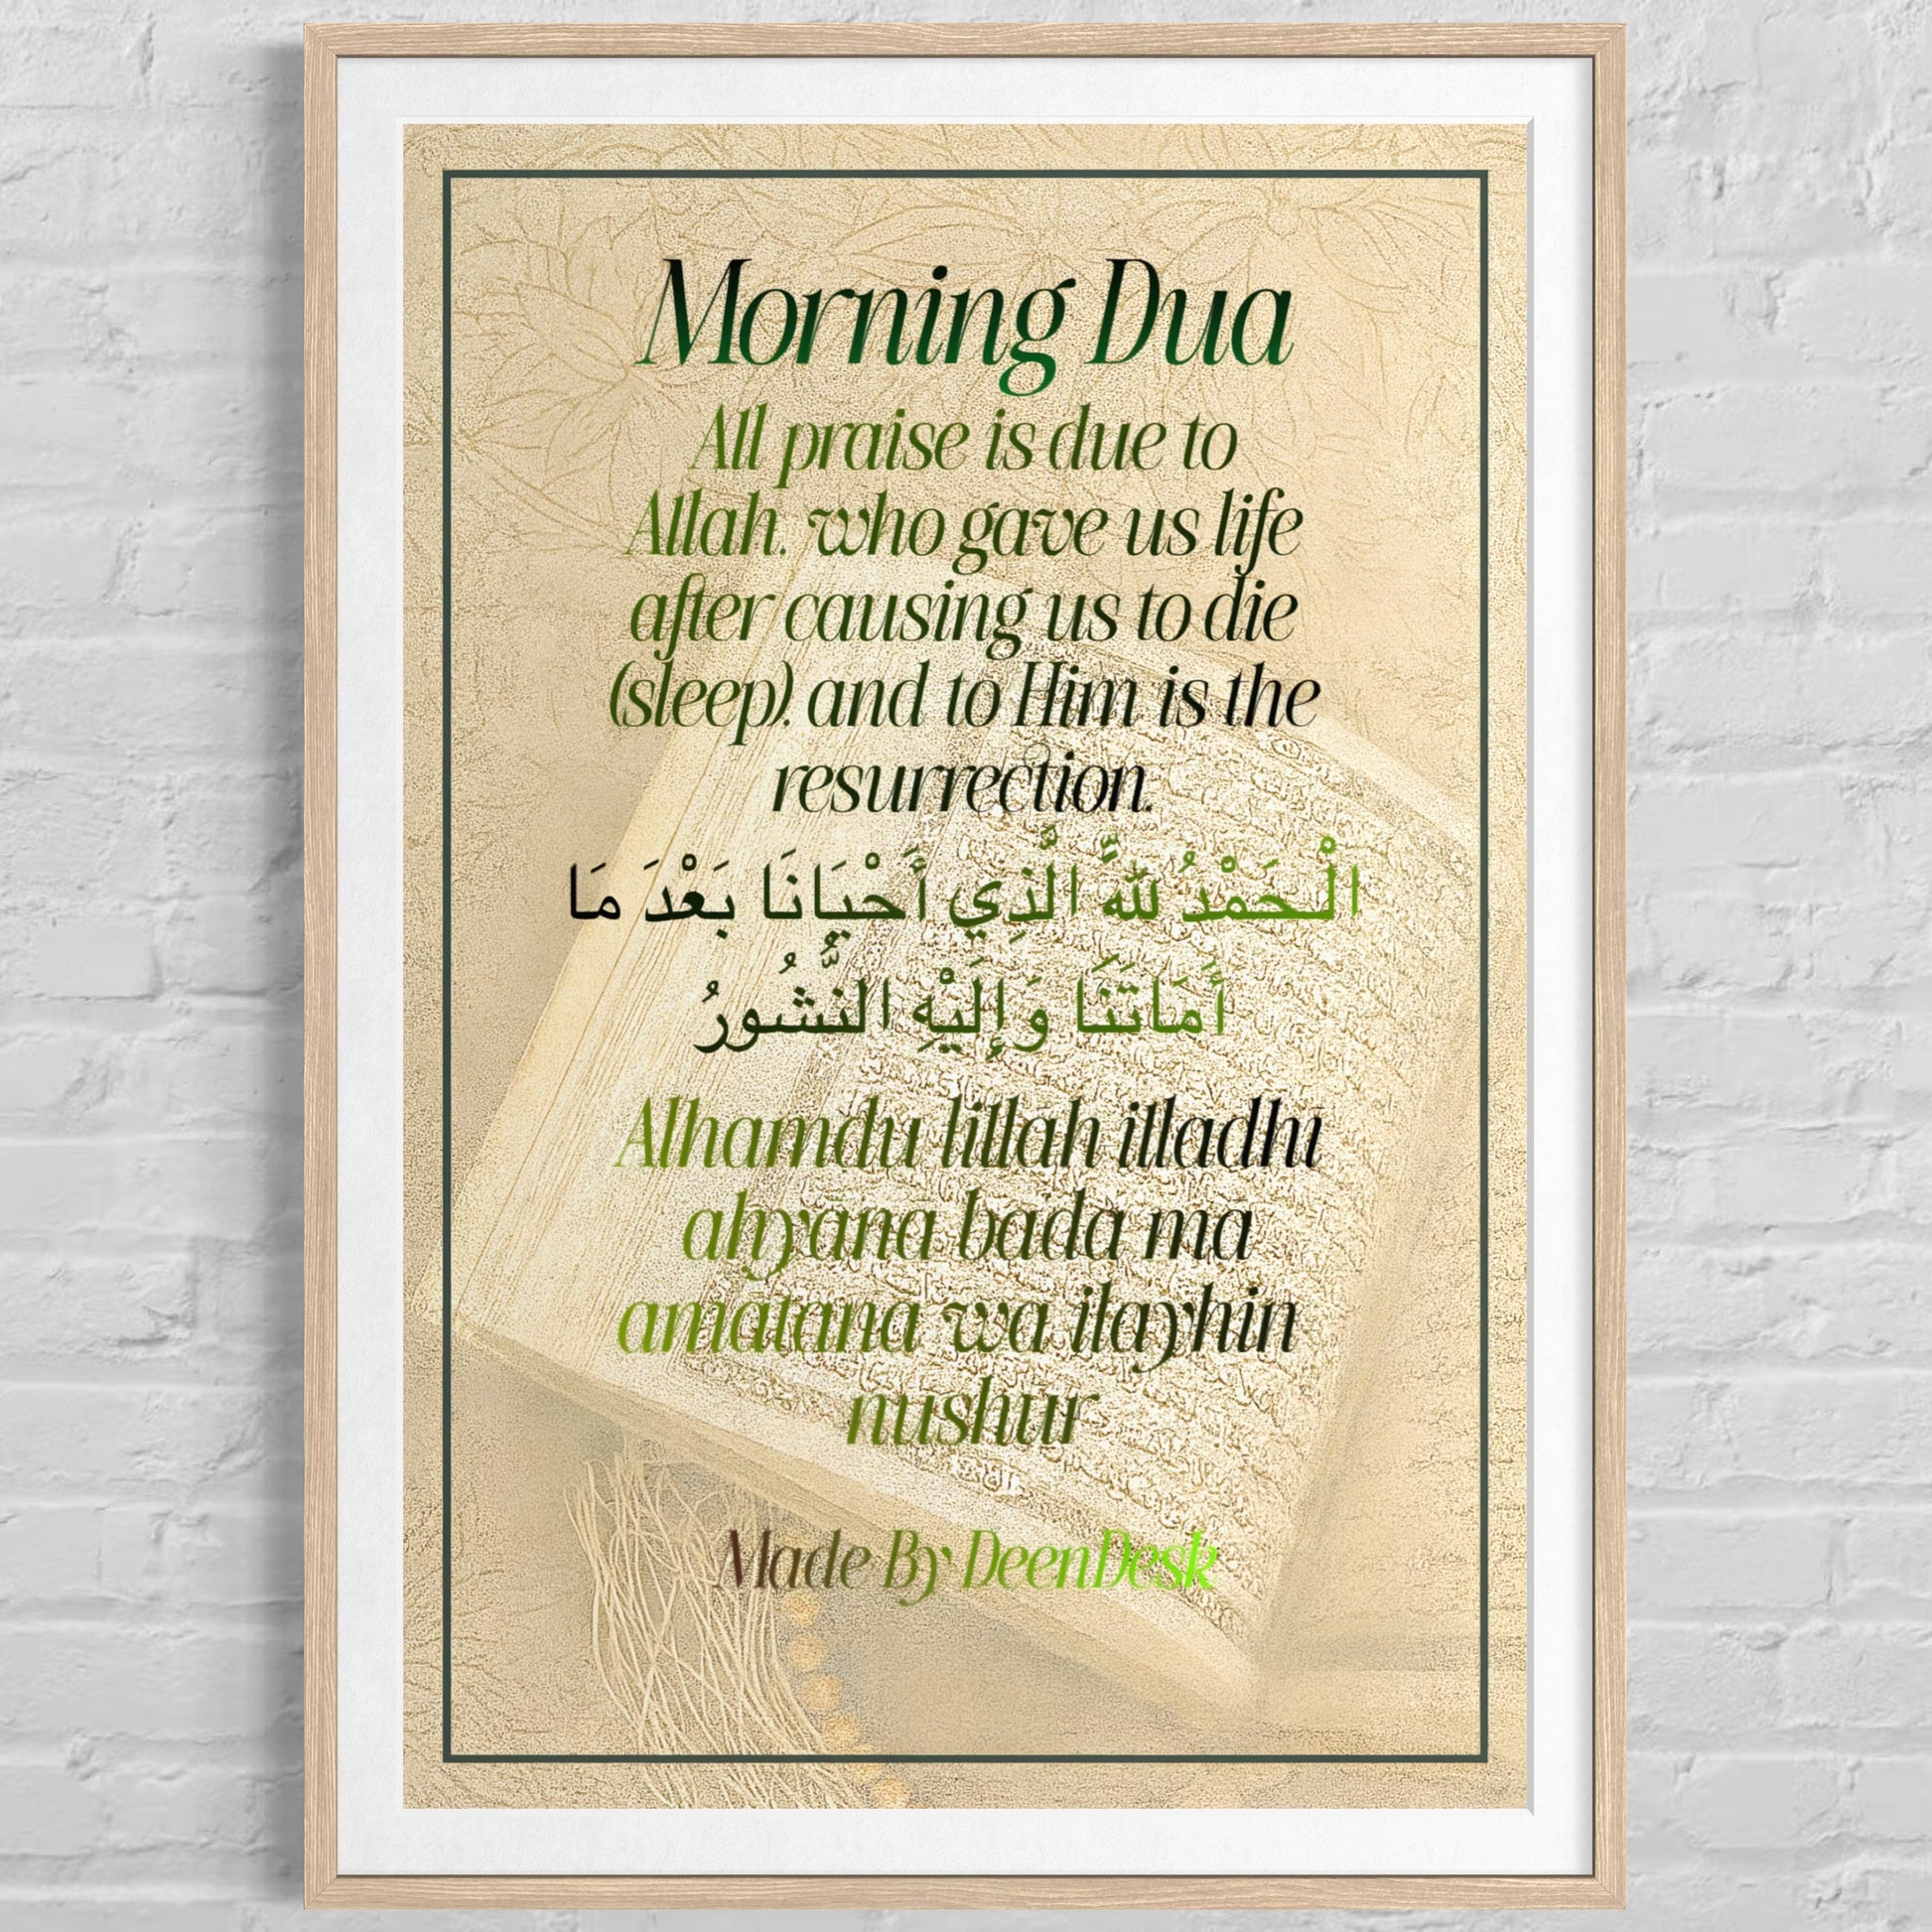 Morning Dua
All praise is due to
Allah, who gave us life
after causing us to die
(sleep), and to Him is the
resurrection.
الْحَمْدُ لِلَّهِ الَّذِي أَحْيَانَا بَعْدَ مَا
أَمَاتَنَا وَإِلَيْهِ النُّشُورُ
Alhamdu lillah illadhi
aḥyānā bada mā
amātanā wa ilayhin
nushur
Made By DeenDesk